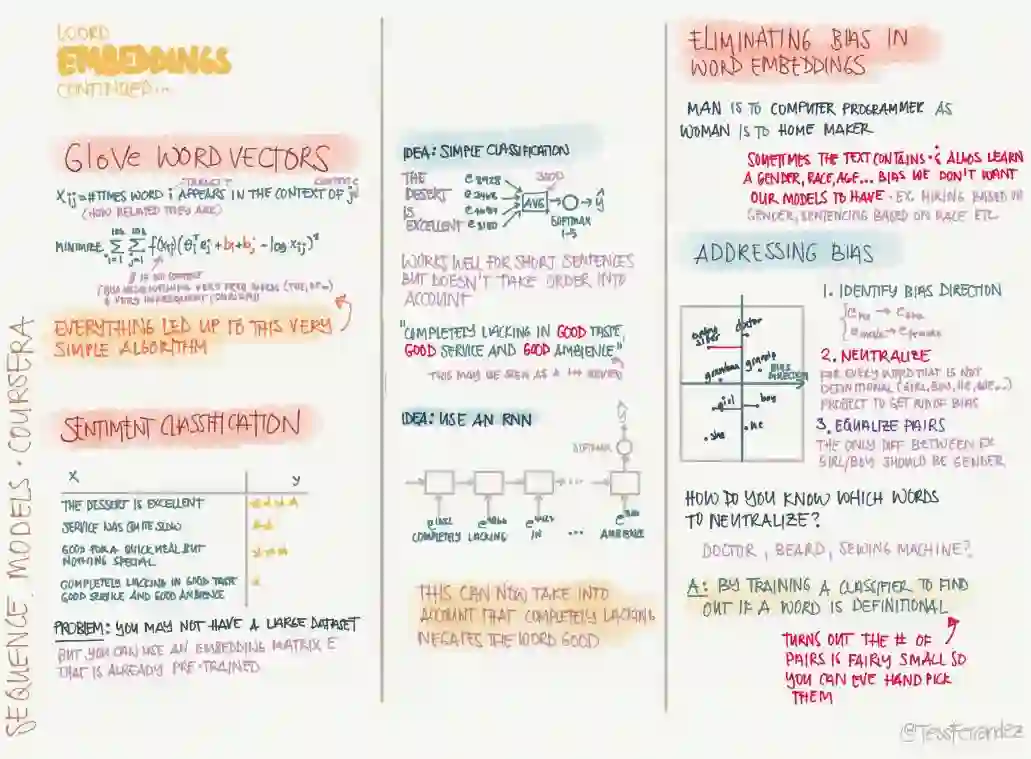 WORD
EMBEDDINGS
CONTINUED...
GloVe WORD VECTORS
TARGET CONTEXT
Xij = # TIMES WORD i APPEARS IN THE CONTEXT OF j
(HOW RELATED THEY ARE)
MINIMIZE
EVERYTHING LED UP TO THIS VERY
SIMPLE ALGORITHM
SENTIMENT CLASSIFICATION
X y
THE DESSERT IS EXCELLENT
SERVICE WAS QUITE SLOW
GOOD FOR A QUICK MEAL BUT
NOTHING SPECIAL
COMPLETELY LACKING IN GOOD TASTE
GOOD SERVICE AND GOOD AMBIENCE
PROBLEM: YOU MAY NOT HAVE A LARGE DATASET
BUT YOU CAN USE AN EMBEDDING MATRIX E
THAT IS ALREADY PRE-TRAINED
SEQUENCE MODELS · COURSERA
IDEA: SIMPLE CLASSIFICATION
THE
DESERT
IS
EXCELLENT
AVG
ŷ
SOFTMAX
1-5
WORKS WELL FOR SHORT SENTENCES
BUT DOESN'T TAKE ORDER INTO
ACCOUNT
"COMPLETELY LACKING IN GOOD TASTE,
GOOD SERVICE AND GOOD AMBIENCE"
THIS MAY BE SEEN AS A
IDEA: USE AN RNN
ŷ
SOFTMAX
COMPLETELY LACKING IN ... AMBIENCE
THIS CAN NOW TAKE INTO
ACCOUNT THAT COMPLETELY LACKING
NEGATES THE WORD GOOD
ELIMINATING BIAS IN
WORD EMBEDDINGS
MAN IS TO COMPUTER PROGRAMMER AS
WOMAN IS TO HOME MAKER
SOMETIMES THE TEXT CONTAINS
A GENDER, RACE, AGE... BIAS WE DON'T WANT
OUR MODELS TO HAVE · EX. HIRING BASED ON
GENDER, SENTENCING BASED ON RACE ETC.
ADDRESSING BIAS
doctor
BIAS
DIRECTION
girl boy
she he
1. IDENTIFY BIAS DIRECTION
2. NEUTRALIZE
FOR EVERY WORD THAT IS NOT
DEFINITIONAL
PROJECT TO GET RID OF BIAS
3. EQUALIZE PAIRS
THE ONLY DIFF BETWEEN EX
GIRL/BOY SHOULD BE GENDER
HOW DO YOU KNOW WHICH WORDS
TO NEUTRALIZE?
DOCTOR, BEARD, SEWING MACHINE?
A: BY TRAINING A CLASSIFIER TO FIND
OUT IF A WORD IS DEFINITIONAL
TURNS OUT THE # OF
PAIRS IS FAIRLY SMALL SO
YOU CAN EVE HAND PICK
THEM
@TessFerrandez